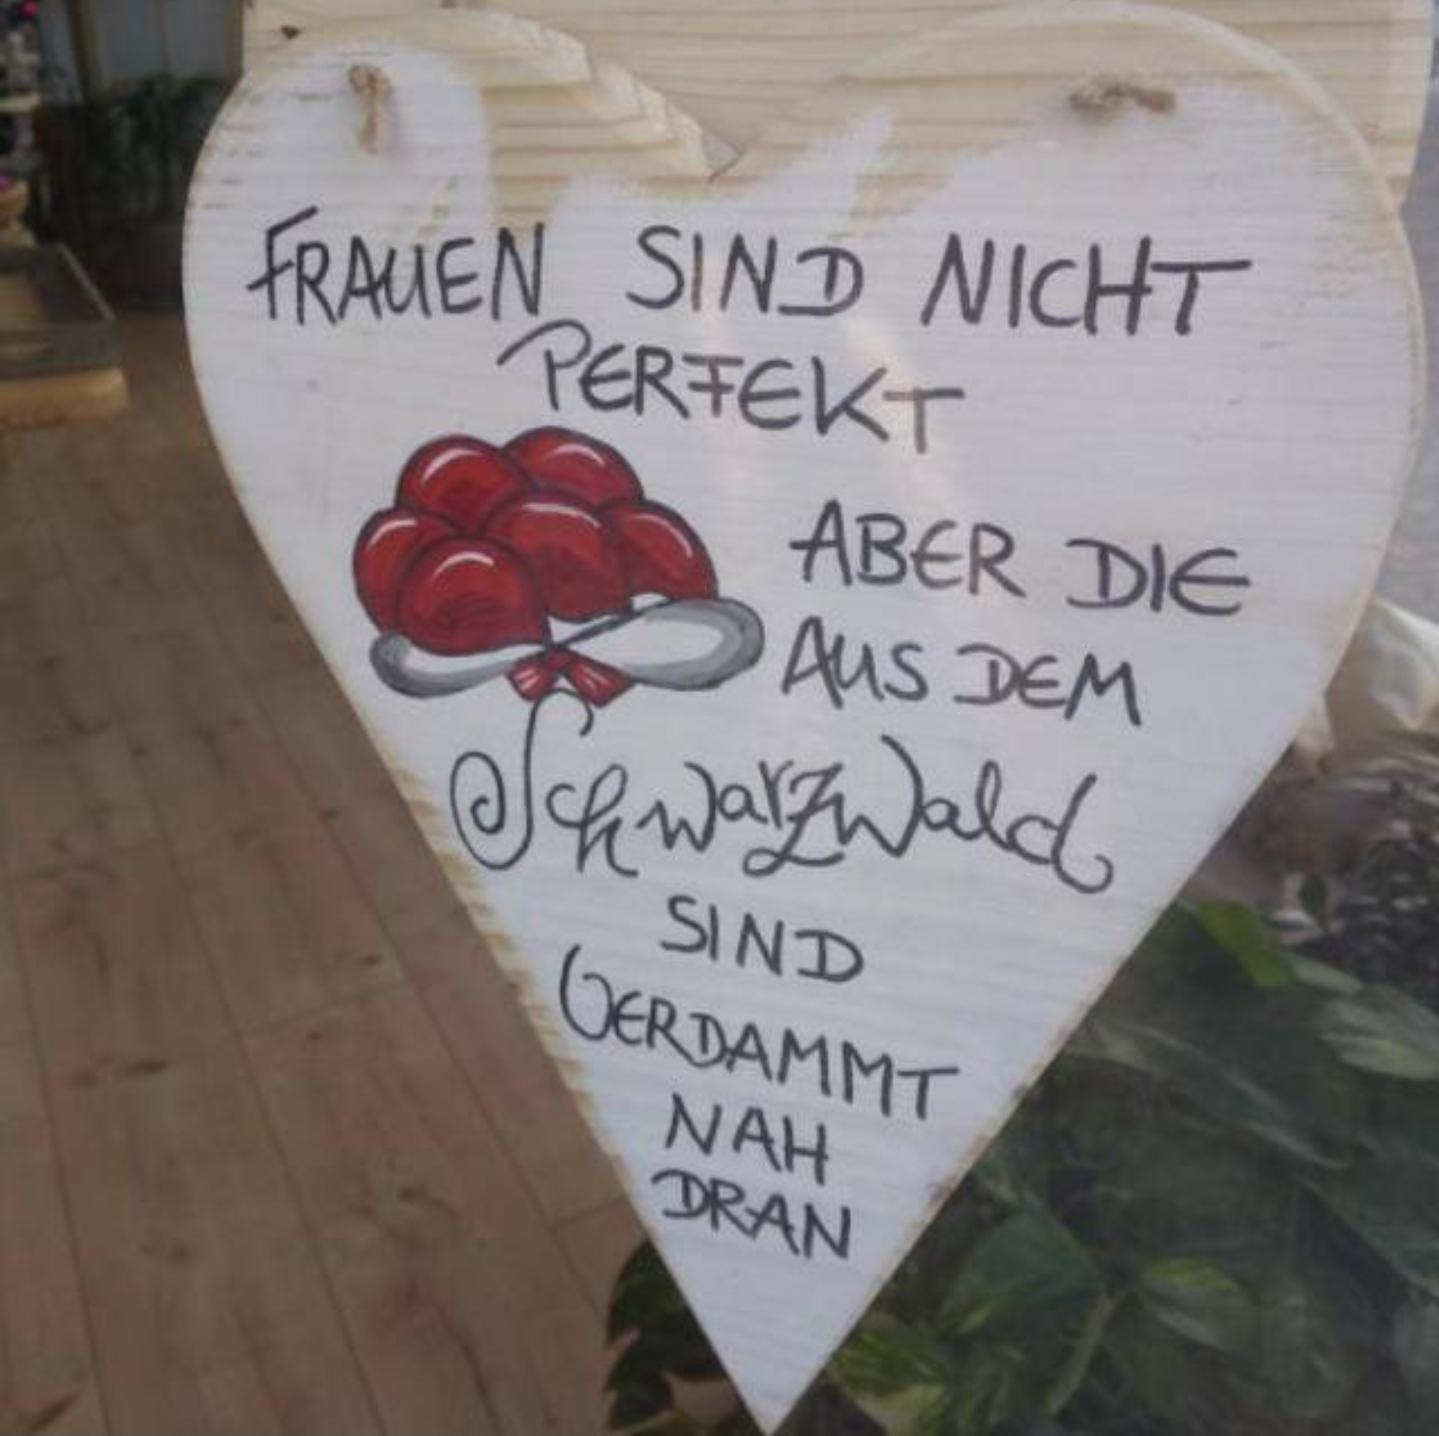 FRAUEN SIND NICHT
PERFEKT
ABER DIE
AUS DEM
Schwarzwald
SIND
VERDAMMT
NAH
DRAN